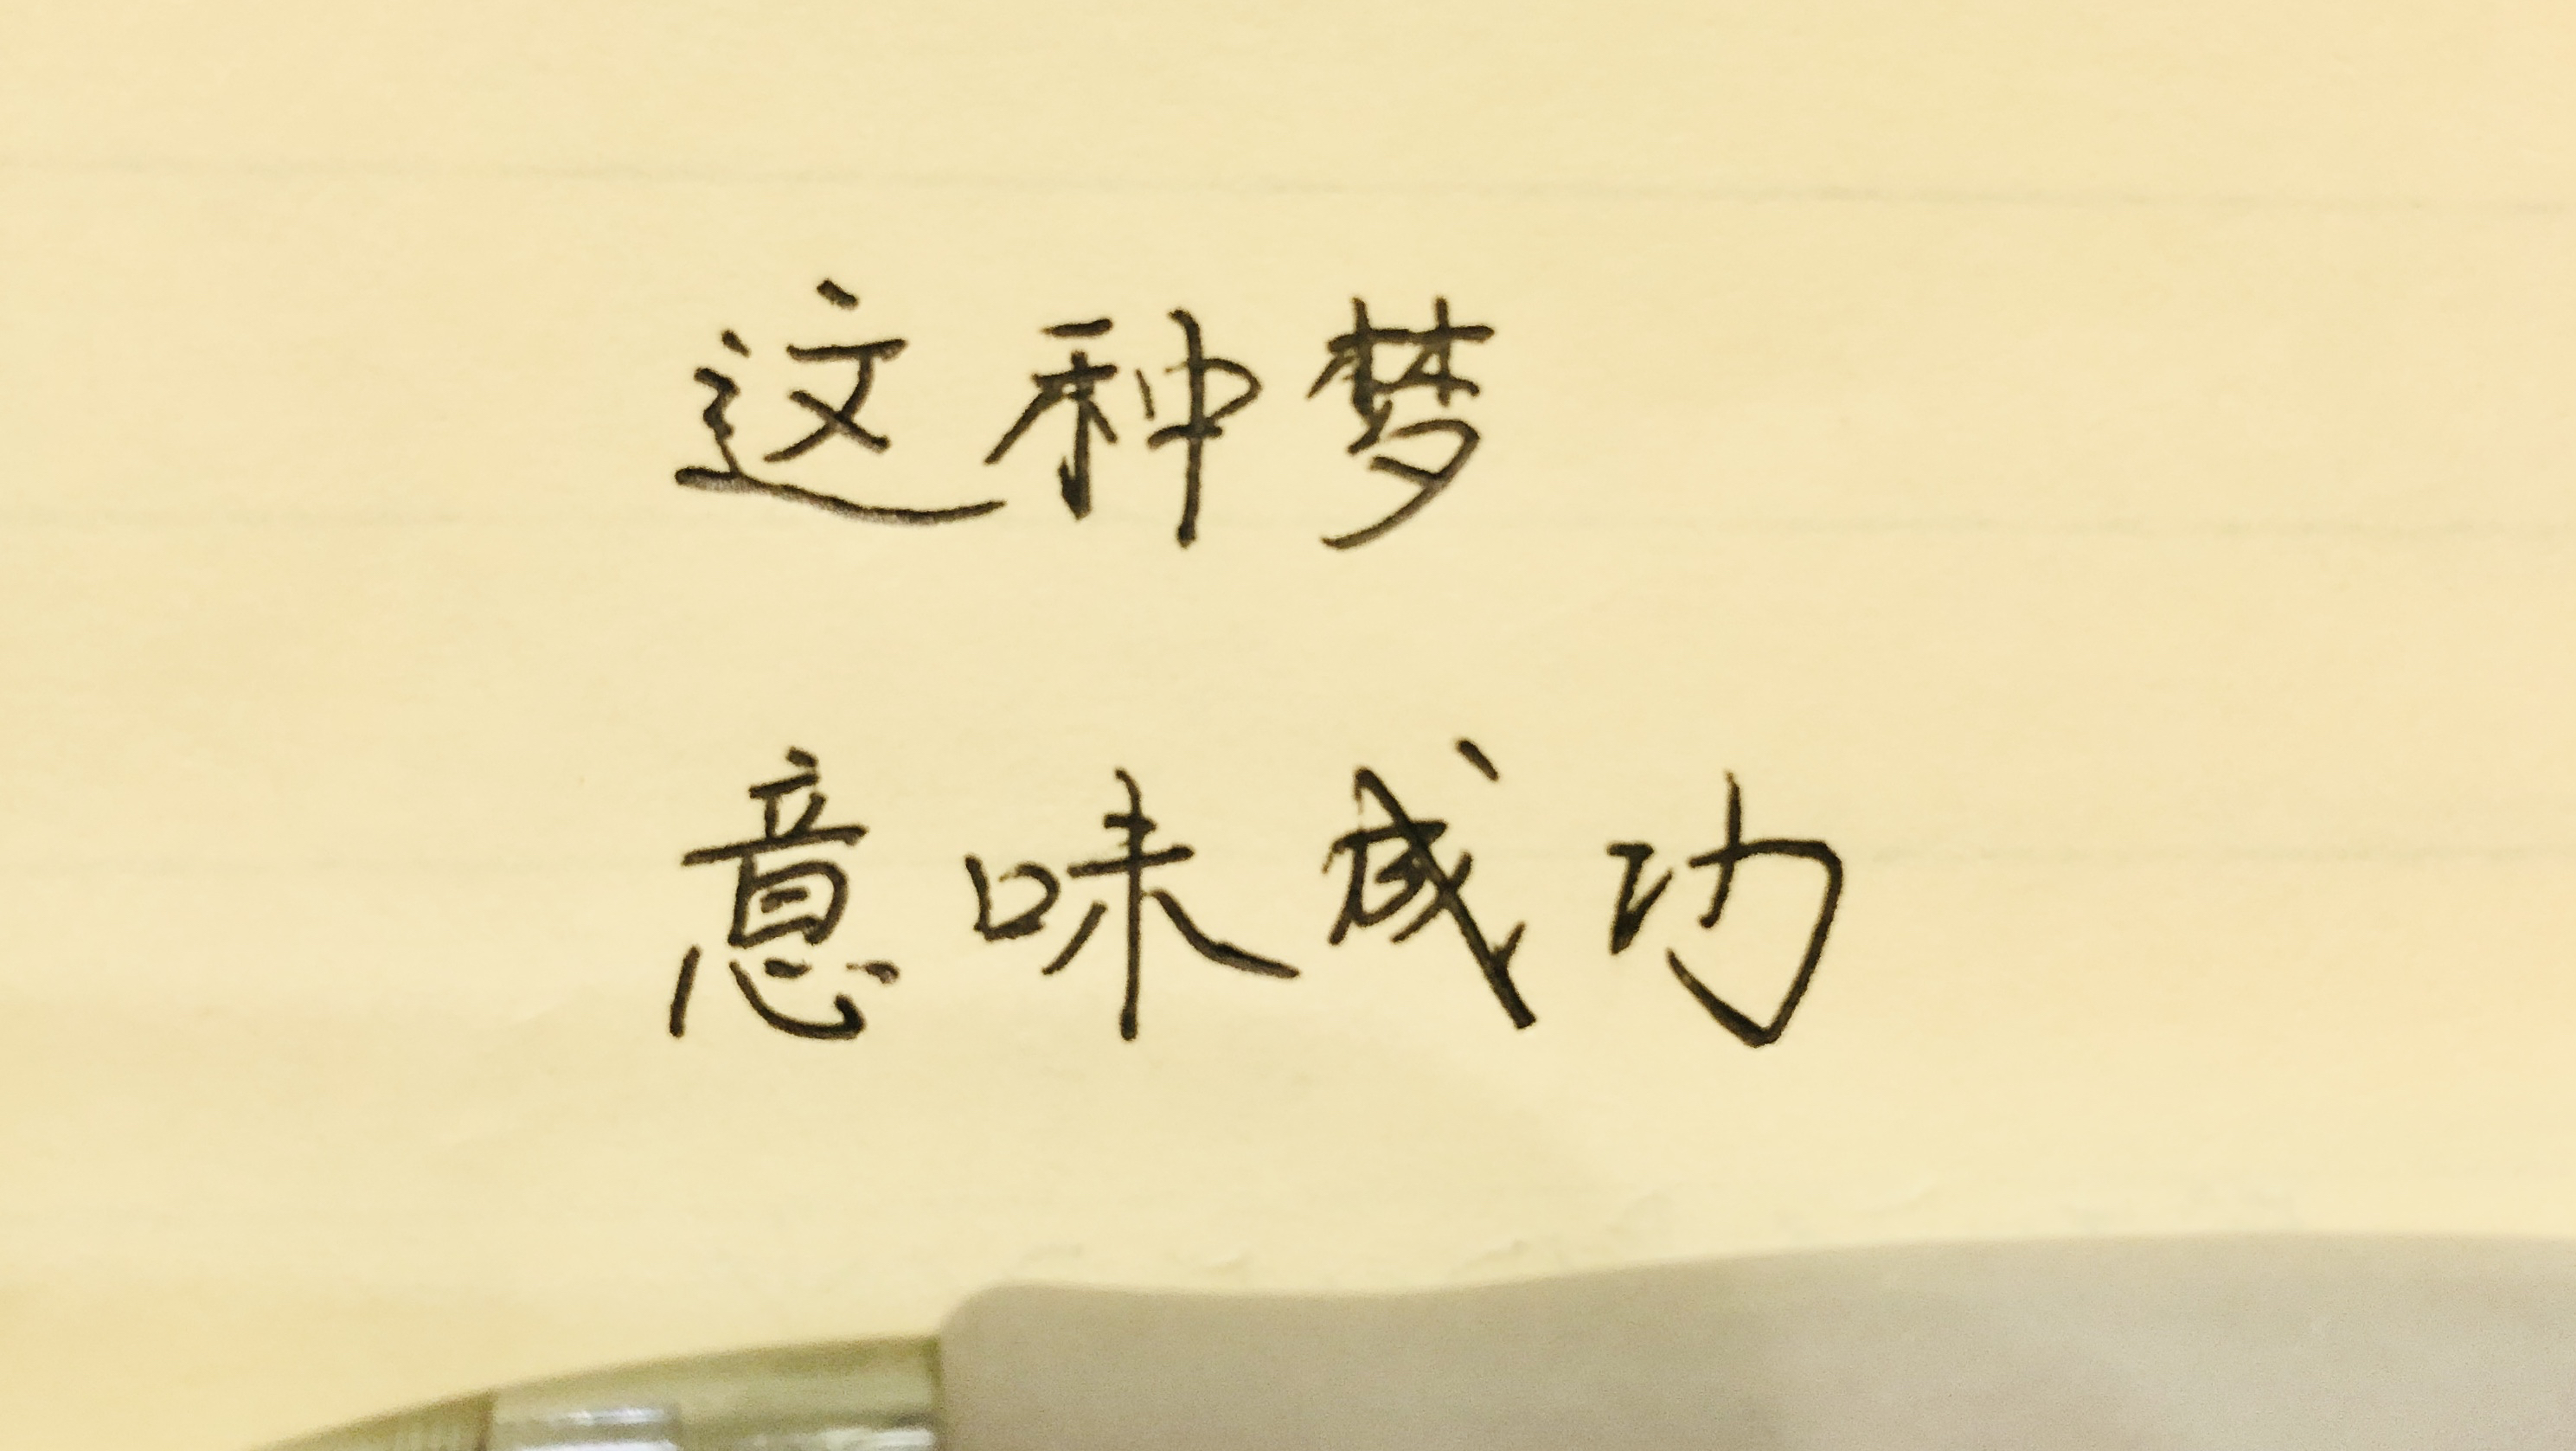 这种梦
意味成功